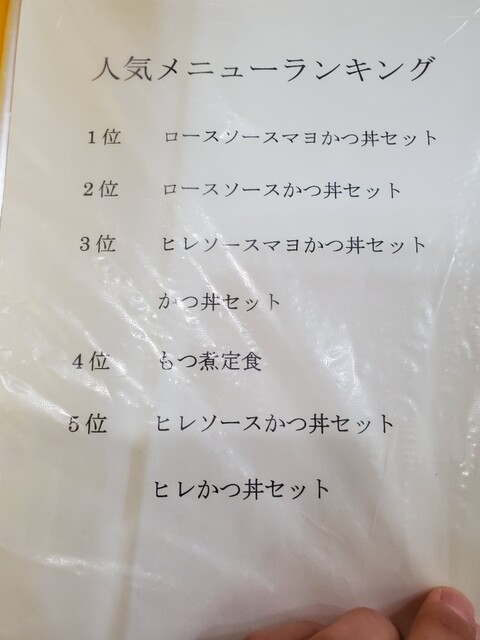 人気メニューランキング
1位 ロースソースマヨかつ丼セット
2位 ロースソースかつ丼セット
3位 ヒレソースマヨかつ丼セット
かつ丼セット
4位 もつ煮定食
5位 ヒレソースかつ丼セット
ヒレかつ丼セット